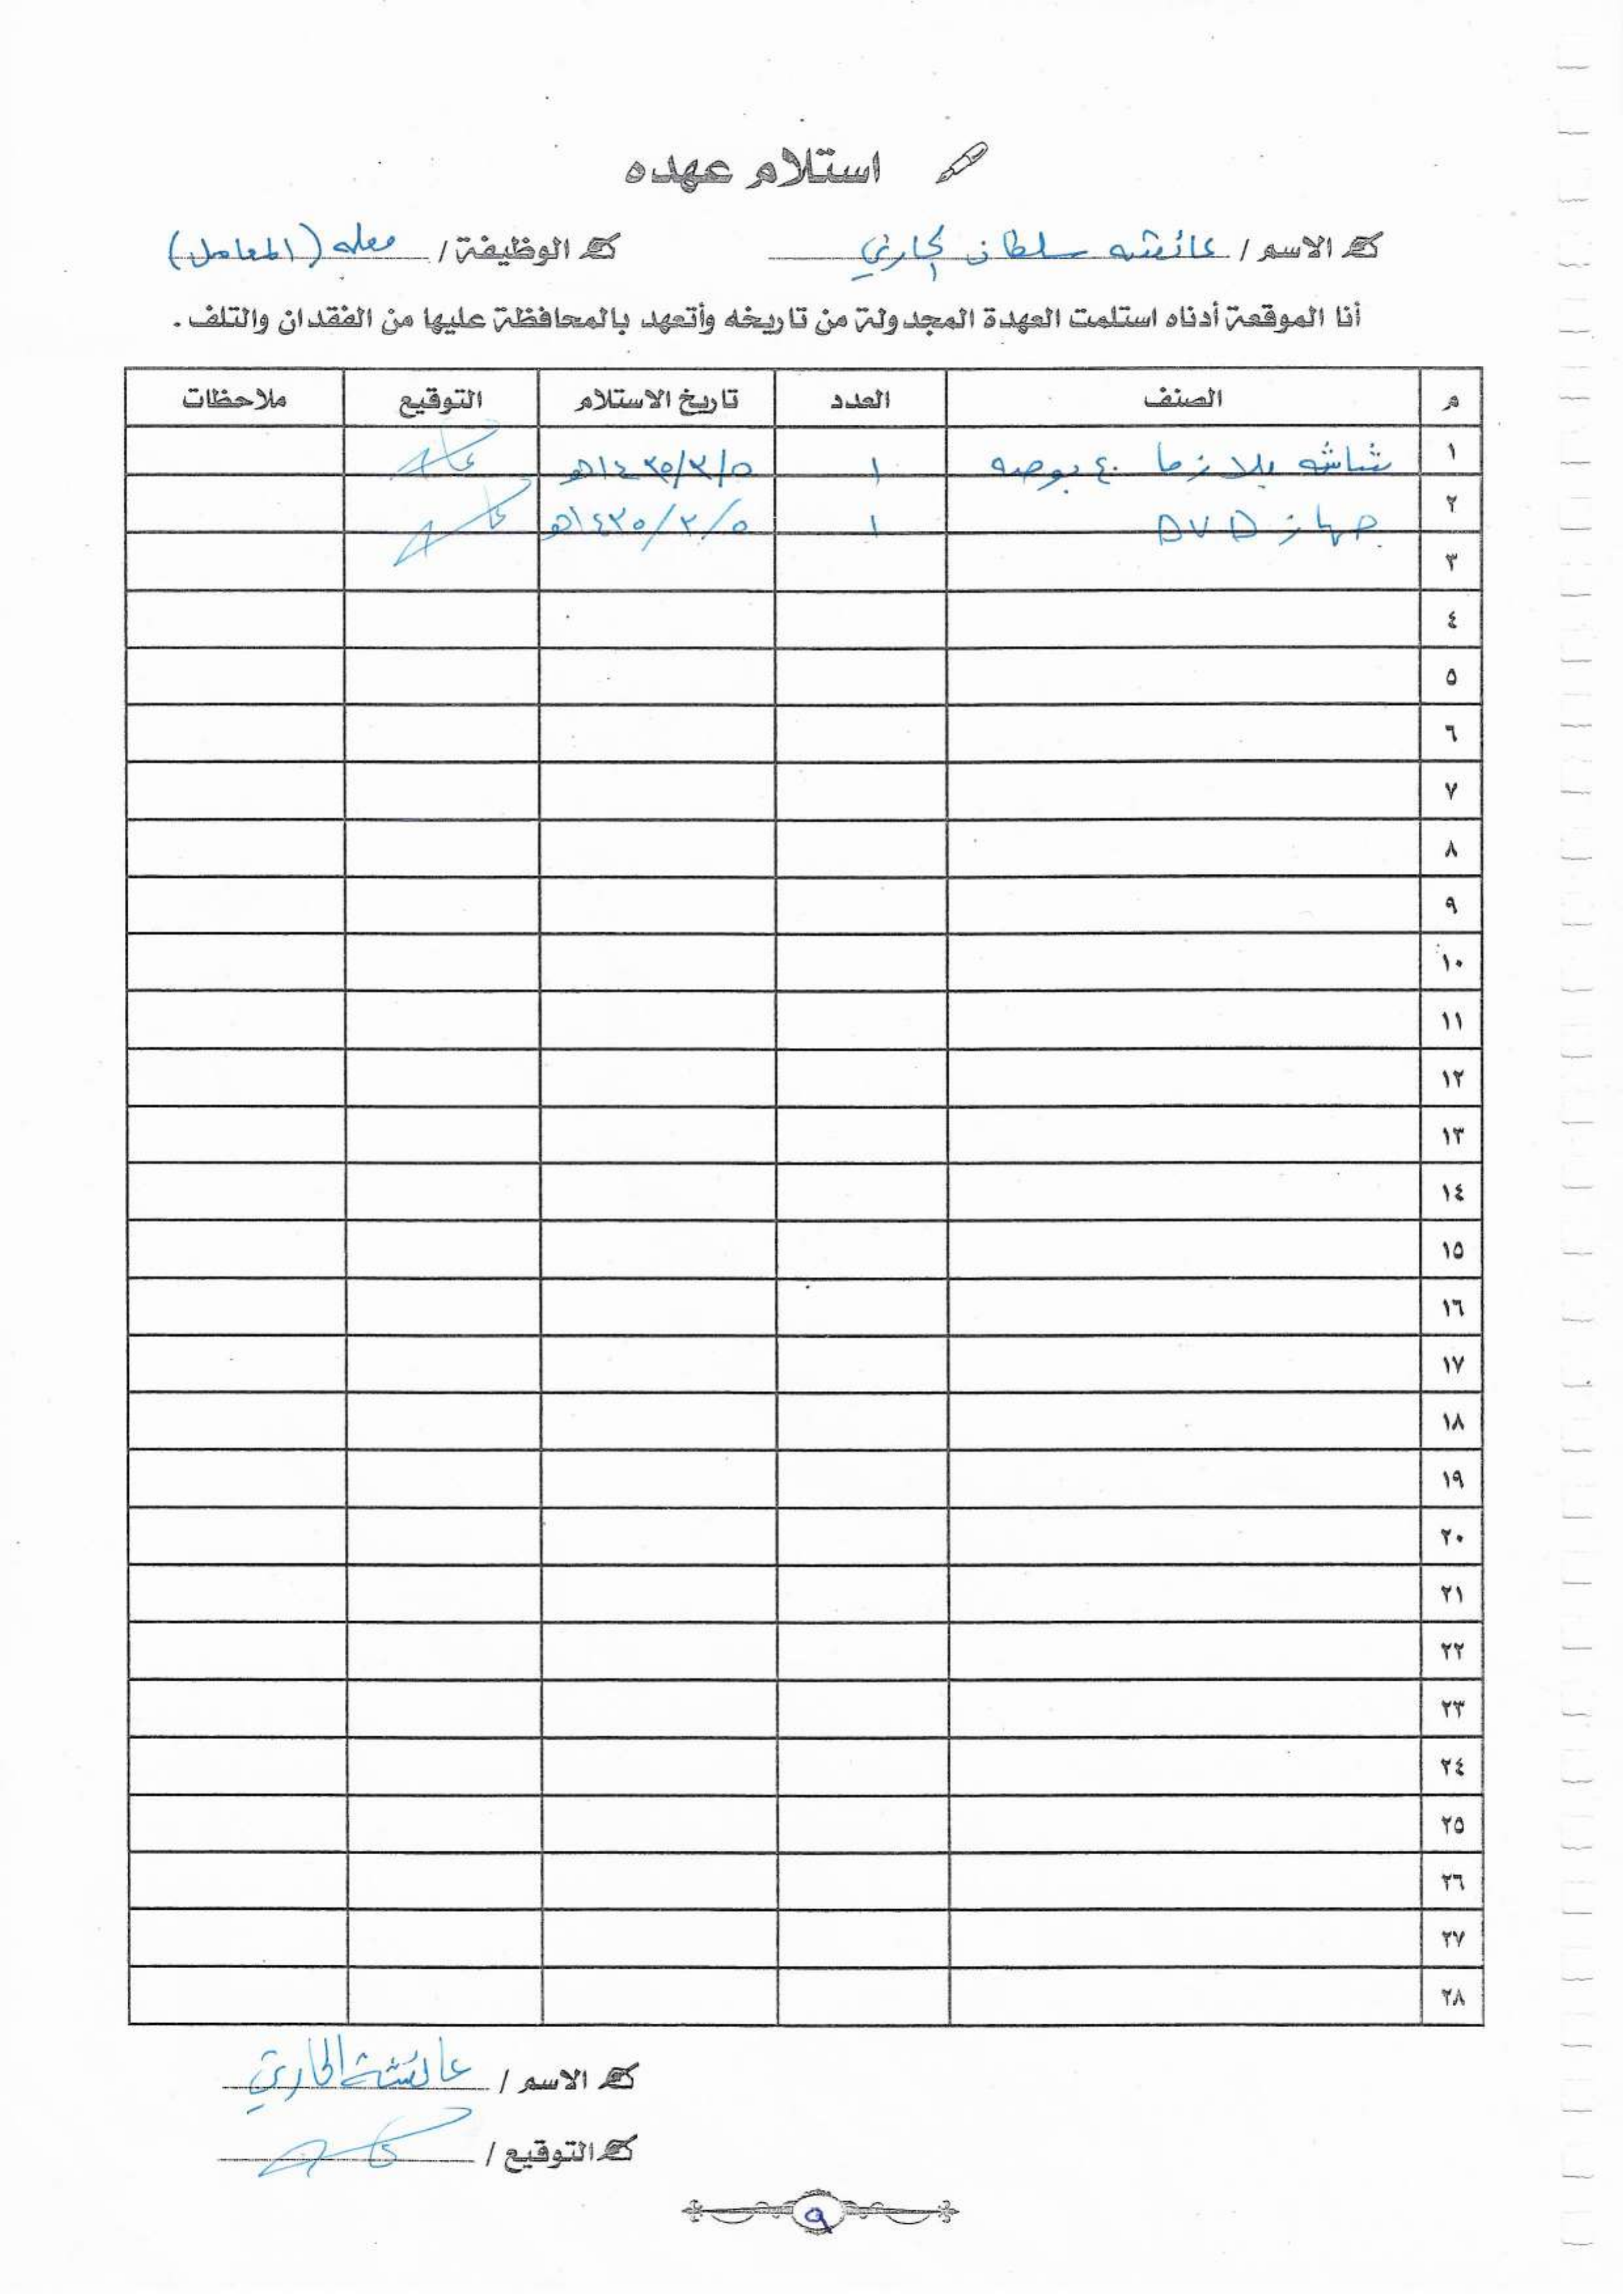 استلام عهده
الاسم / عائشه سلطان الحارثي
الوظيفة / معلمه (المعامل)
أنا الموقعة أدناه استلمت العهدة المجدولة من تاريخه وأتعهد بالمحافظة عليها من الفقدان والتلف .
م الصنف العدد تاريخ الاستلام التوقيع ملاحظات
١ شاشه بلازما ٤٠ بوصه ١ ٥/٢/١٤٣٥هـ
٢ جهاز DVD ١ ٥/٢/١٤٣٥هـ
٣
٤
٥
٦
٧
٨
٩
١٠
١١
١٢
١٣
١٤
١٥
١٦
١٧
١٨
١٩
٢٠
٢١
٢٢
٢٣
٢٤
٢٥
٢٦
٢٧
٢٨
الاسم / عائشة الحارثي
التوقيع /
٩